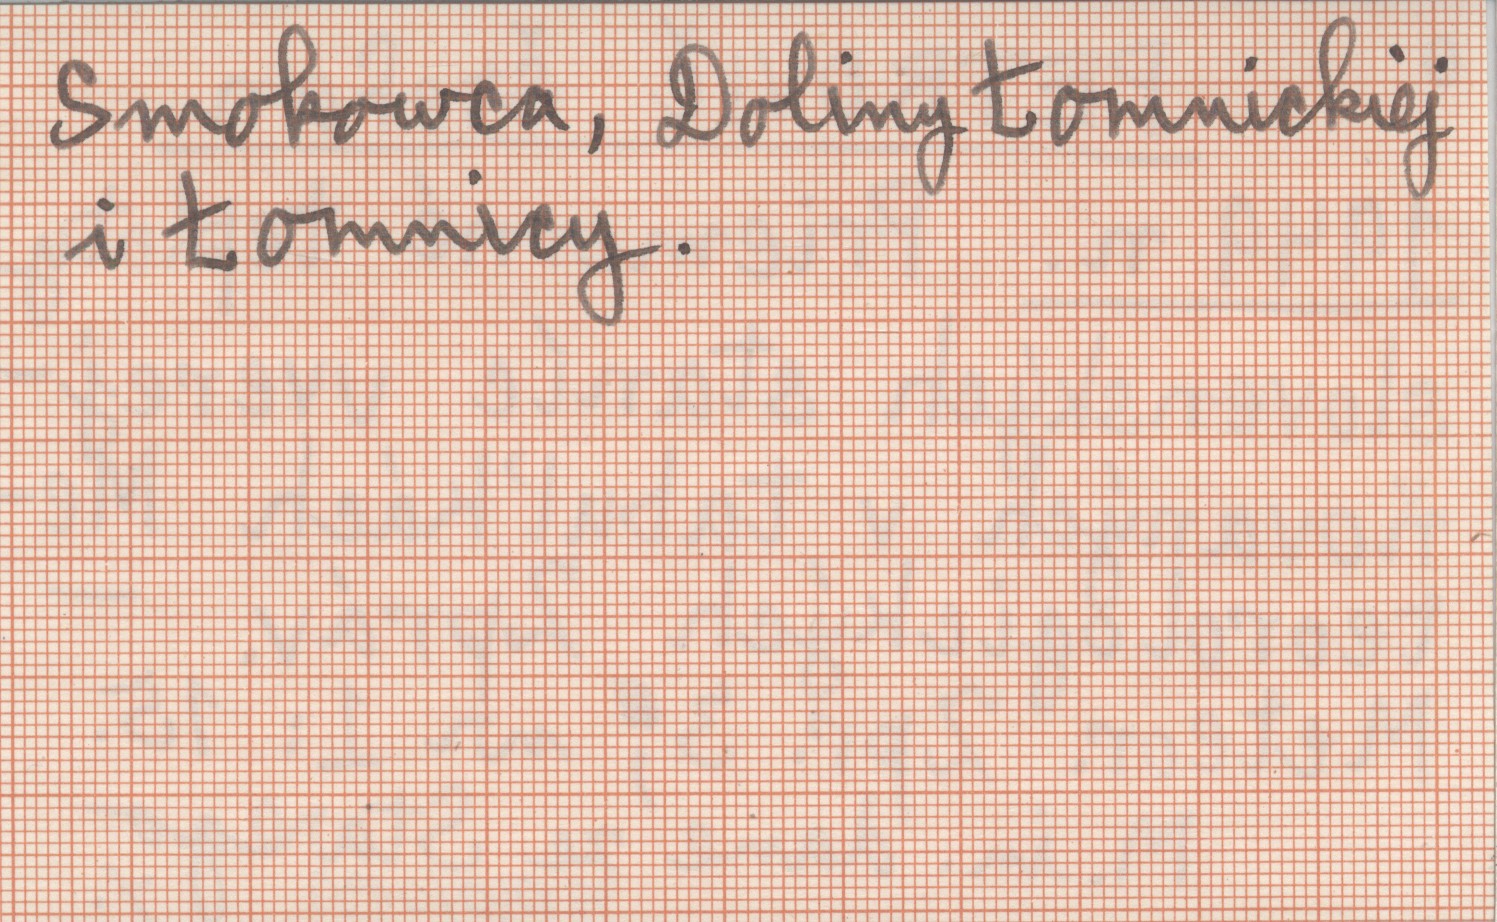 Smokowca, Doliny Łomnickiéj
i Łomnicy.